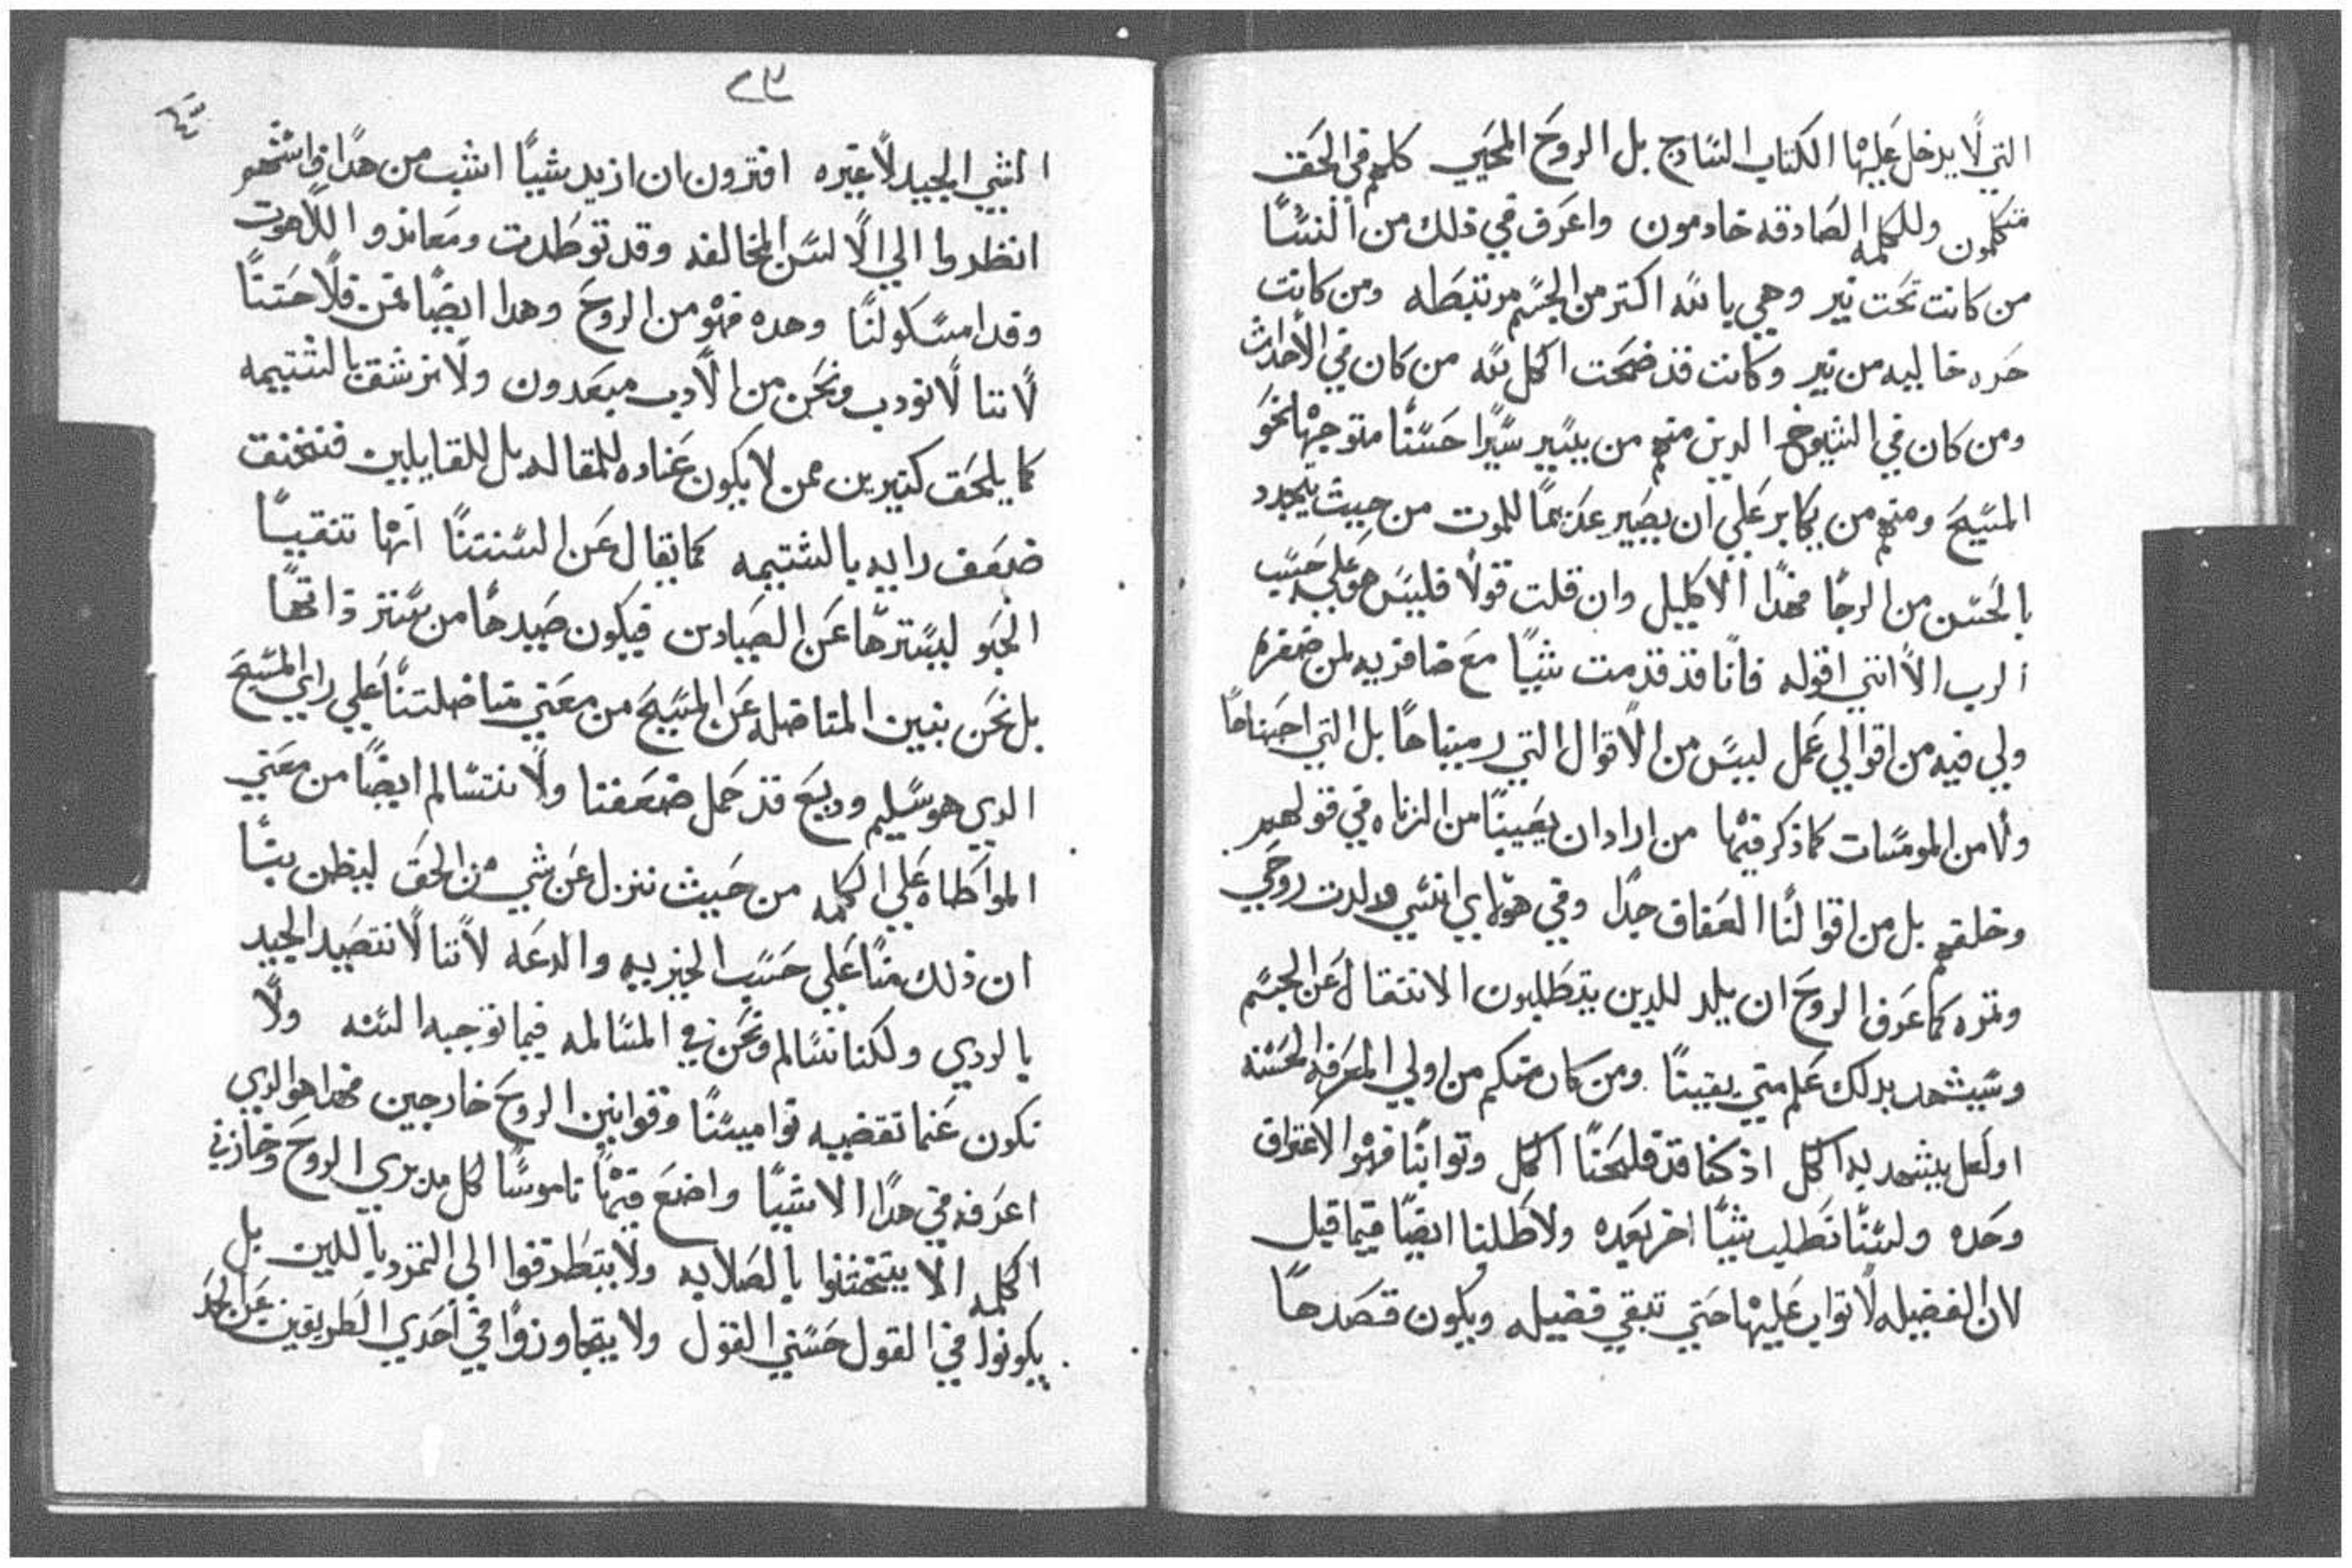 التي لا يدخل عليها الكتاب السادج بل الروح المحيي كلهم في الحق
متكلمون وللكلمه الصادقه خادمون واعرف في ذلك من النسا
من كانت تحت نير وهي بالله اكتر من الجسم مرتبطه ومن كانت
حره خاليه من نير وكانت قد ضحت الكل لله من كان في الأحداث
ومن كان في الشيوخ الدين منهم من يسير سيرا حسنا متوجها نحو
المسيح ومنهم من يكابر علي ان يصير عديما للموت من حيث يتجدد
بالحسن من الرجا فهدا الاكليل وان قلت قولا فليس هو علي حسب
الرب الا انني اقوله فانا قد قدمت شيا مع ضافريه لمن ضفره
ولي فيه من اقوالي عمل ليس من الاقوال التي رميناها بل التي احبناها
ولا من المومسات كما ذكر فيها من اراد ان يعيبنا من الزناه في قولهم
وخلقهم بل من اقوالنا العفاف جدا وفي هولاي انسي ولدت روحي
وتمره كما عرف الروح ان يلد للدين يتطلبون الانتقال عن الجسم
وسيشهد بدلك علم متي يقينا ومن كان منكم من اولي المعرفه الحسنه
اولعل يشهد به الكل اذ كنا قد فلحنا الكل وتوابنا فهو الاعتراف
وحده ولسنا نطلب شيا اخر بعده ولا طلبنا ايضا فيما قبل
لان الفضيله لا تواب عليها حتي تبقي فضيله ويكون قصدها
٢٣
الشي الجيد لا غيره افترون ان ازيد شيا اشب من هدا فاشهو
انظروا الي الالسن المخالفه وقد توطدت ومعاندوا اللاهوت
وقد امسكو لنا وهده فهو من الروح وهدا ايضا تمن فلاحتنا
لاننا لا نودب ونحن من الادب مبعدون ولا نرشق بالشتيمه
كما يلحق كتيرين ممن لا يكون عناده للمقاله بل للقايلين فنخنق
ضعف رايه بالشتيمه كما يقال عن السنتنا انها تتقيا
الحبو ليسترها عن الصيادين فيكون صيدها من ستر داتها
بل نحن نبين المناضله عن المسيح من معني مناضلتنا علي راي المسيح
الدي هو سليم وديع قد حمل ضعفنا ولا نتسالم ايضا من معني
المواطاه علي الكلمه من حيث ننزل عن شي من الحق ليظن بنا
ان ذلك منا علي حسب الخيريه والدعه لاننا لا نتصيد الجيد
بالردي ولكنا نسالم ونحن في المسالمه فيما توجبه السنه ولا
نكون عنما تقضيه نواميسنا وقوانين الروح خارجين فهدا هو الدي
اعرفه في هدا الا شيا واضع فيها ناموسا لكل مدبري الروح وخازني
الكلمه الا يتخشنوا بالصلابه ولا يتطرقوا الي التمرد باللين بل
يكونوا في القول حسني القول ولا يتجاوزوا في احدي الطريقين عن الحد